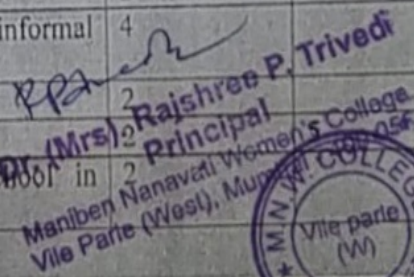 informal 4
2
Dr. (Mrs). Rajshree P. Trivedi
2
Principal
in 2
Maniben Nanavati Women's College
Vile Parle (West), 056
M.N.W. COLLEGE
Vile parle
(W)